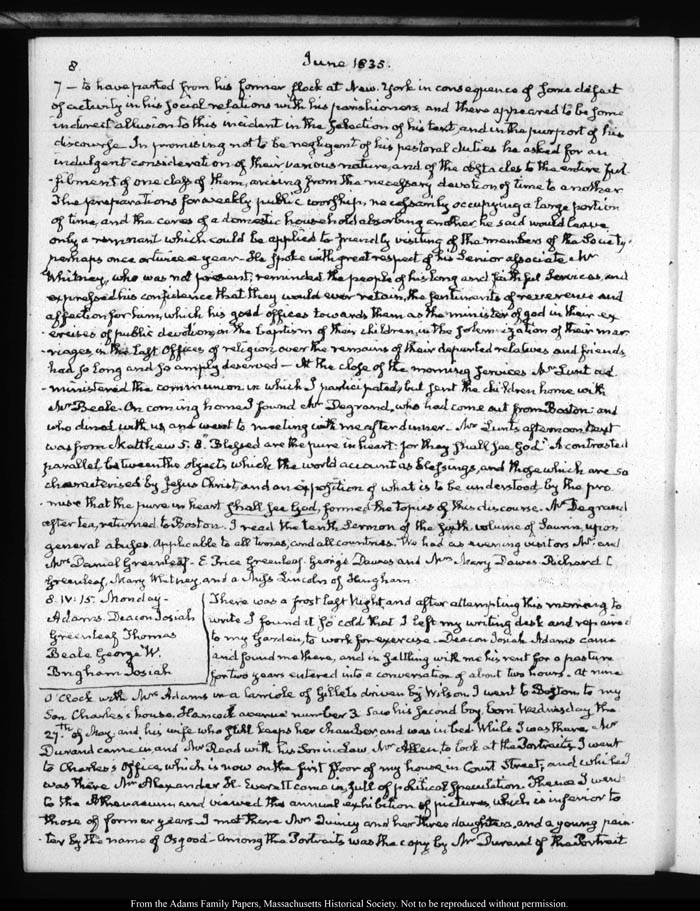 8
June 1835.
7 — to have parted from his former flock at New-York in consequence of some defect
of activity in his social relations with his parishioners, and there appeared to be some
indirect allusion to this incident in the selection of his text, and in the purport of his
discourse. In promising not to be negligent of his pastoral duties he asked for an
indulgent consideration of their various nature, and of the obstacles to the entire ful-
-filment of one class of them, arising from the necessary devotion of time to another
The preparations for weekly public worship, necessarily occupying a large portion
of time, and the cares of a domestic household absorbing another, he said would leave
only a remnant which could be applied to friendly visiting of the members of the Society,
perhaps once or twice a year — He spoke with great respect of his Senior associate Mr
Whitney, who was not present, reminded the people of his long and faithful Services, and
expressed his confidence that they would ever retain, the sentiments of reverence and
affection for him, which his good offices towards them as the minister of god in their ex-
-ercises of public devotion, on the baptism of their children, in the solemnization of their mar-
-riages, in the last Offices of religion over the remains of their departed relatives and friends
had so long and so amply deserved — At the close of the morning services Mr Lunt ad-
-ministered the communion in which I participated, but sent the children home with
Mr Beale. On coming home I found Mr Degrand, who had come out from Boston and
who dined with us and went to meeting with me after dinner. Mr Lunt's afternoon text
was from Matthew 5. 8. "Blessed are the pure in heart: for they shall see God." A contrasted
parallel between the objects which the world account as blessings, and those which are so
characterised by Jesus Christ, and an exposition of what is to be understood by the pro-
mise that the pure in heart shall see God, formed the topics of this discourse. Mr Degrand
after tea, returned to Boston. I read the tenth Sermon of the sixth volume of Saurin, upon
general abuses. Applicable to all times, and all countries. We had as evening visitors Mr and
Mrs Daniel Greenleaf — E. Price Greenleaf. George Dawes and Mrs Mary Dawes. Richard C
Greenleaf, Mary Whitney, and a Miss Lincoln of Hingham.
8. IV: 15. Monday —
Adams. Deacon Josiah
Greenleaf Thomas
Beale George W.
Brigham Josiah
There was a frost last Night and after attempting this morning to
write I found it so cold that I left my writing desk and repaired
to my Garden, to work for exercise. Deacon Josiah Adams came
and found me there, and in settling with me his rent for a pasture
for two years entered into a conversation of about two hours. At nine
O'Clock with Mrs Adams in a Carriole of Gillets driven by Wilson I went to Boston to my
Son Charles's house, Hancock avenue number 3. Saw his second boy, born Wednesday the
27th of May, and his wife who still keeps her chamber, and was in bed. While I was there, Mr
Durand came in, and Mr Read with his Son in Law, Mr Allen, to look at the Portraits. I went
to Charles's Office, which is now on the first floor of my house in Court Street, and while I
was there Mr Alexander H. Everett came in, full of political Speculation. Thence I went
to the Athenaeum, and viewed the annual exhibition of pictures, which is inferior to
those of former years. I met there Mrs Quincy and her three daughters, and a young pain-
-ter by the name of Osgood — among the Portraits was the copy by Mr Durand of the Portrait
From the Adams Family Papers, Massachusetts Historical Society. Not to be reproduced without permission.